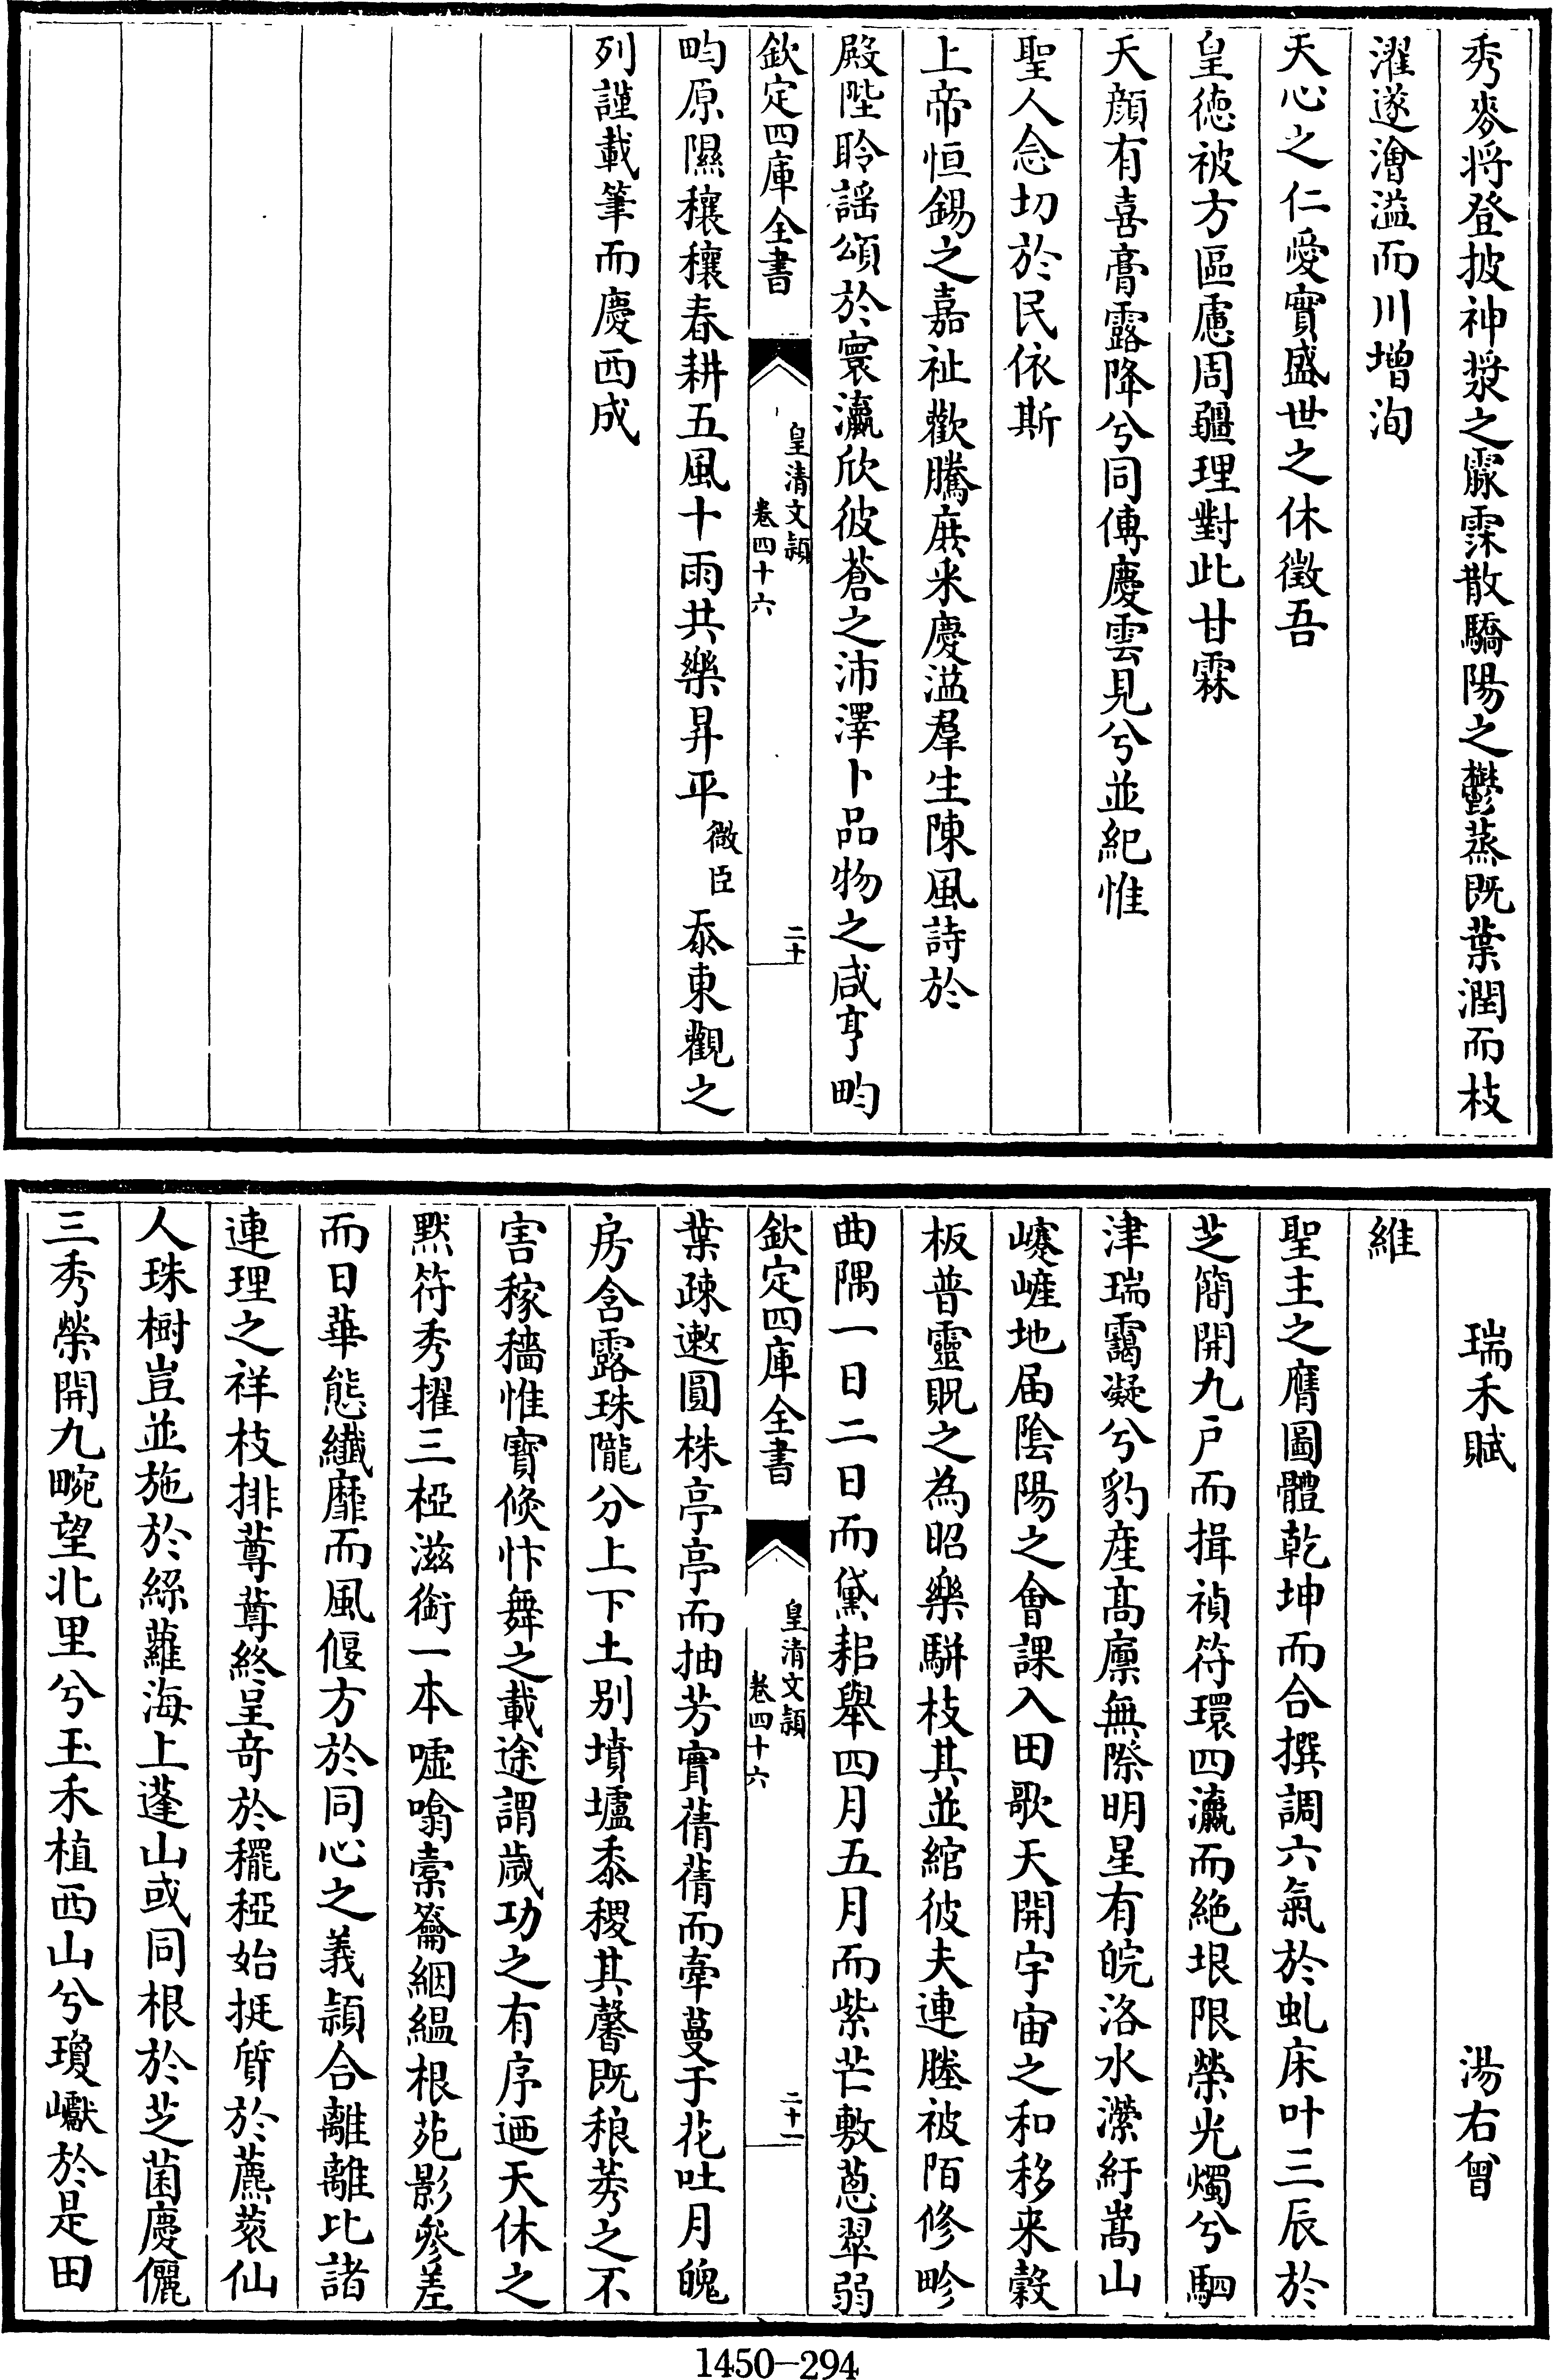 秀麥将登披神漿之霢霂散驕陽之鬱蒸既葉潤而枝
濯遂澮溢而川增洵
天心之仁愛實盛世之休徵吾
皇徳被方區慮周疆理對此甘霖
天顔有喜膏露降兮同傳慶雲見兮並紀惟
聖人念切於民依斯
上帝恒錫之嘉祉歡騰庶采慶溢羣生陳風詩於
殿陛聆謡頌於寰瀛欣彼蒼之沛澤卜品物之咸亨畇
欽定四庫全書
皇清文頴
卷四十六
二十
畇原隰穰穰春耕五風十雨共樂昇平微臣忝東觀之
列謹載筆而慶西成
瑞禾賦 湯右曾
維
聖主之膺圖體乾坤而合撰調六氣於虬床叶三辰於
芝簡開九戸而揖禎符環四瀛而絶垠限榮光燭兮駟
津瑞靄凝兮豹産髙廪無際明星有皖洛水瀠紆嵩山
嶘嵼地届陰陽之會課入田歌天開宇宙之和移来穀
板普靈貺之為昭樂駢枝其並綰彼夫連塍被陌修畛
曲隅一日二日而黛耜舉四月五月而紫芒敷蔥翠弱
欽定四庫全書
皇清文頴
卷四十六
二十一
葉疎遬圓株亭亭而抽芳實蒨蒨而牽蔓于花吐月魄
房含露珠隴分上下土别墳壚黍稷其馨既稂莠之不
害稼穡惟寶倐忭舞之載途謂歳功之有序迺天休之
黙符秀擢三椏滋銜一本嘘噏槖籥絪緼根苑影參差
而日華態纎靡而風偃方於同心之義頴合離離比諸
連理之祥枝排蓴蓴終呈奇於穲稏始挺質於藨蔉仙
人珠樹豈並施於絲蘿海上蓬山或同根於芝菌慶儷
三秀榮開九畹望北里兮玉禾植西山兮瓊巘於是田
1450-294